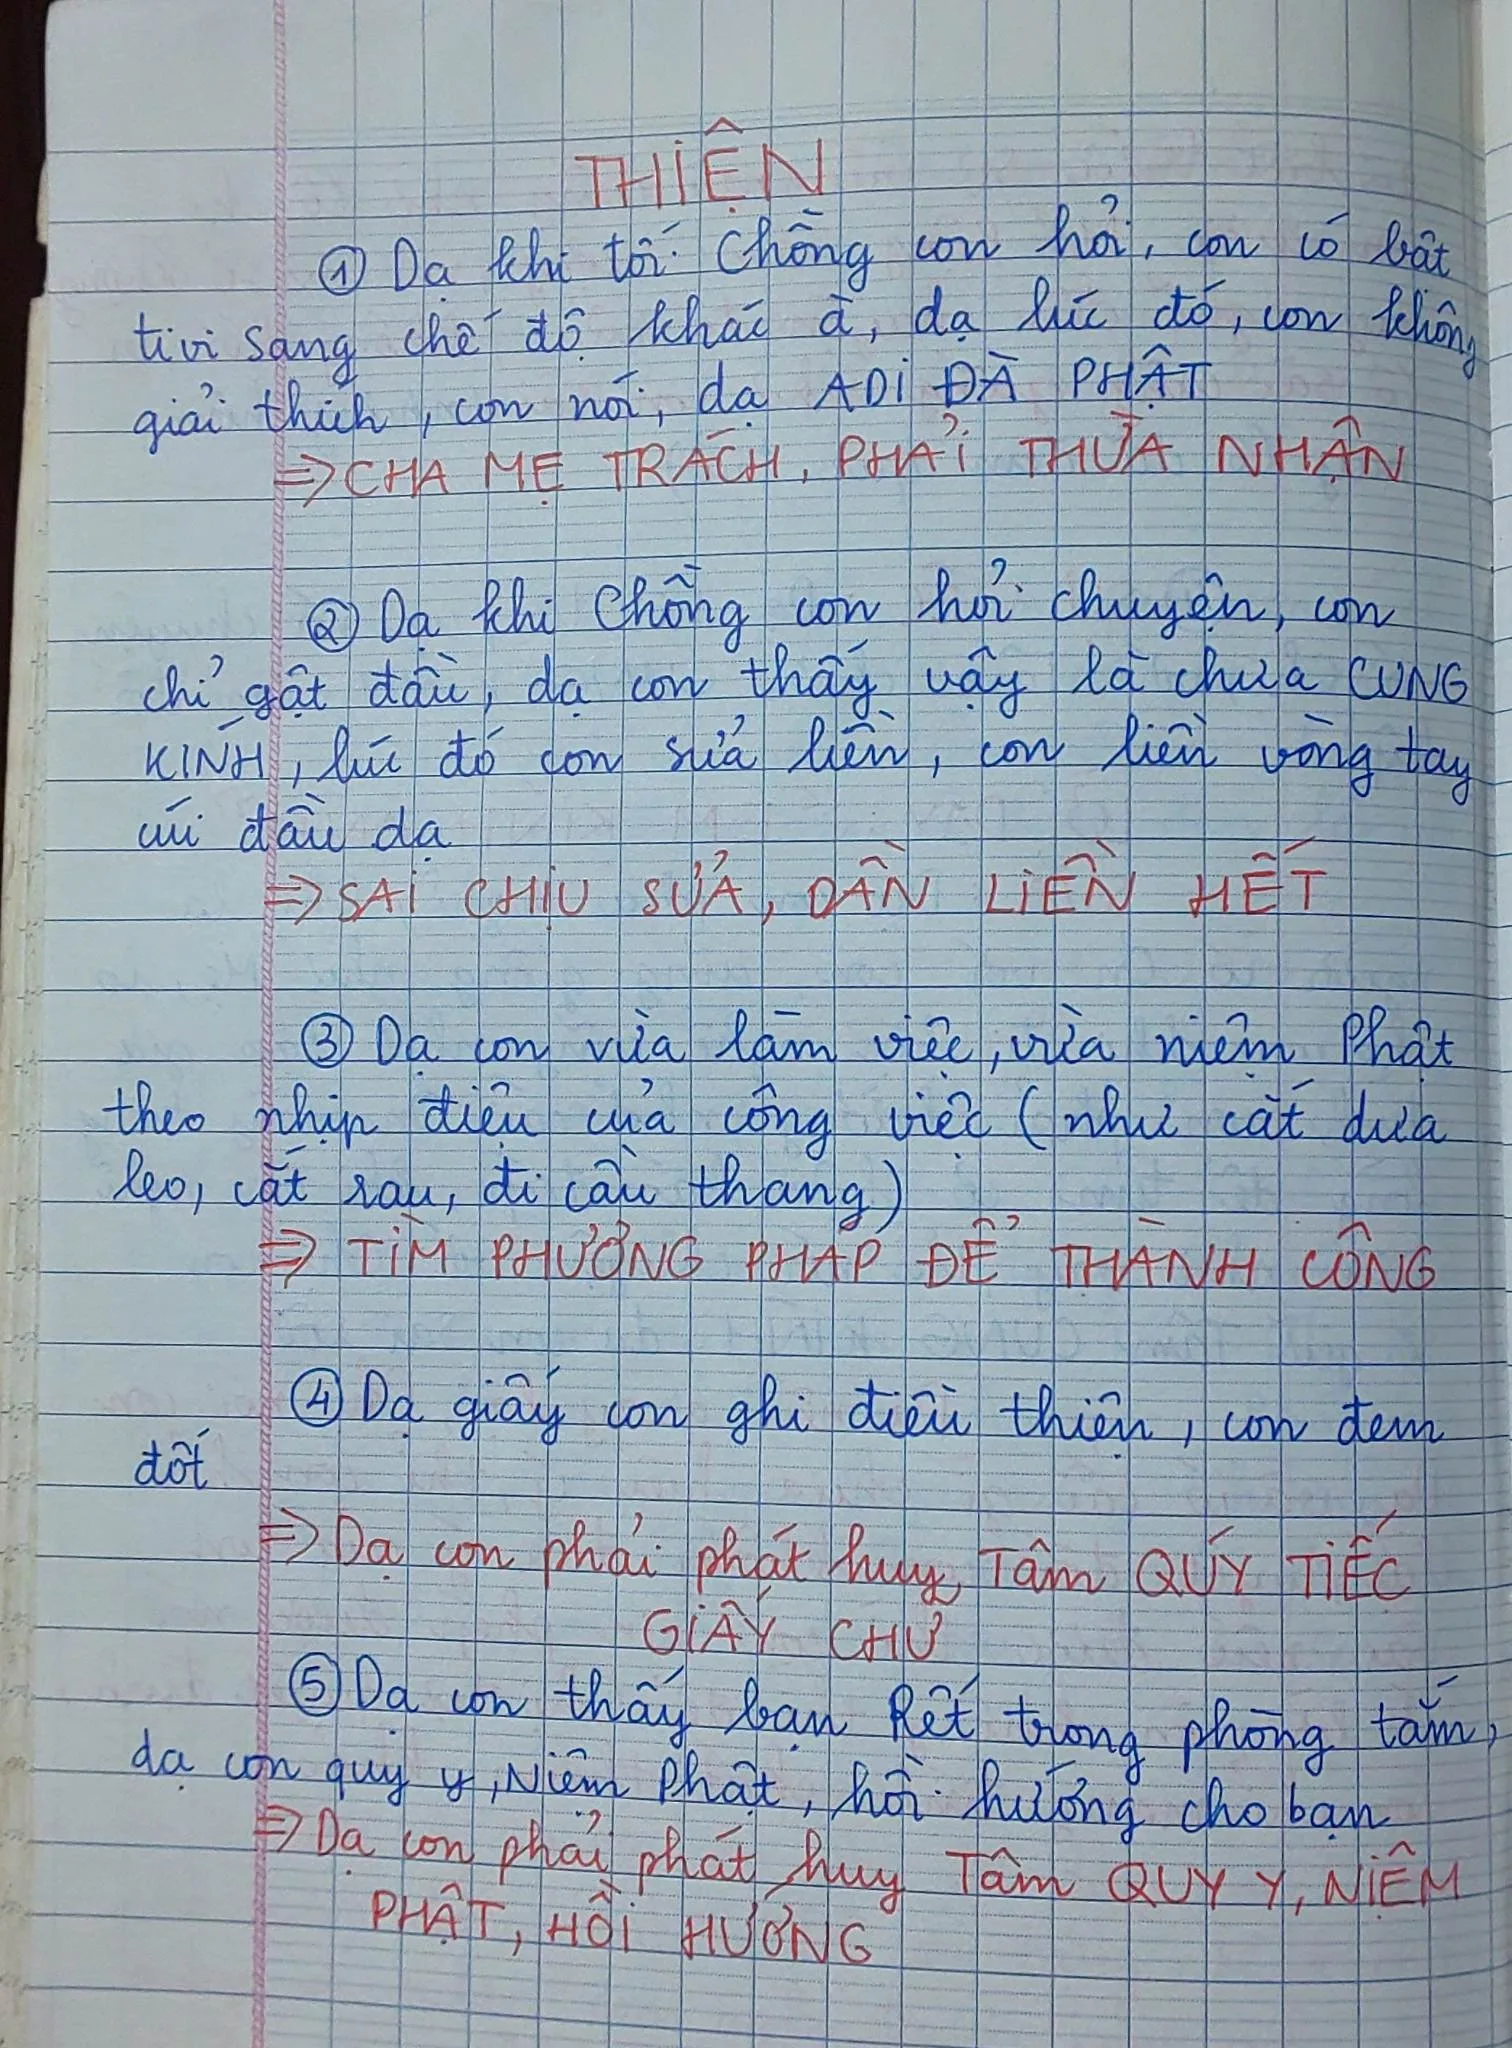 THIỆN
① Dạ khi tối Chồng con hỏi, con có bật
tivi sang chế độ khác à, dạ lúc đó, con không
giải thích, con nói, dạ ADI ĐÀ PHẬT
=> CHA MẸ TRÁCH, PHẢI THỪA NHẬN
② Dạ khi Chồng con hỏi chuyện, con
chỉ gật đầu, dạ con thấy vậy là chưa CUNG
KÍNH, lúc đó con sửa liền, con liền vòng tay
cúi đầu dạ
=> SAI CHỊU SỬA, DẦN LIỀN HẾT
③ Dạ con vừa làm việc, vừa niệm Phật
theo nhịp điệu của công việc (như cắt dưa
leo, cắt rau, đi cầu thang)
=> TÌM PHƯƠNG PHÁP ĐỂ THÀNH CÔNG
④ Dạ giấy con ghi điều thiện, con đem
đốt
=> Dạ con phải phát huy Tâm QUÝ TIẾC
GIẤY CHỮ
⑤ Dạ con thấy bạn Rết trong phòng tắm,
dạ con quy y, Niệm Phật, hồi hướng cho bạn
=> Dạ con phải phát huy Tâm QUY Y, NIỆM
PHẬT, HỒI HƯỚNG